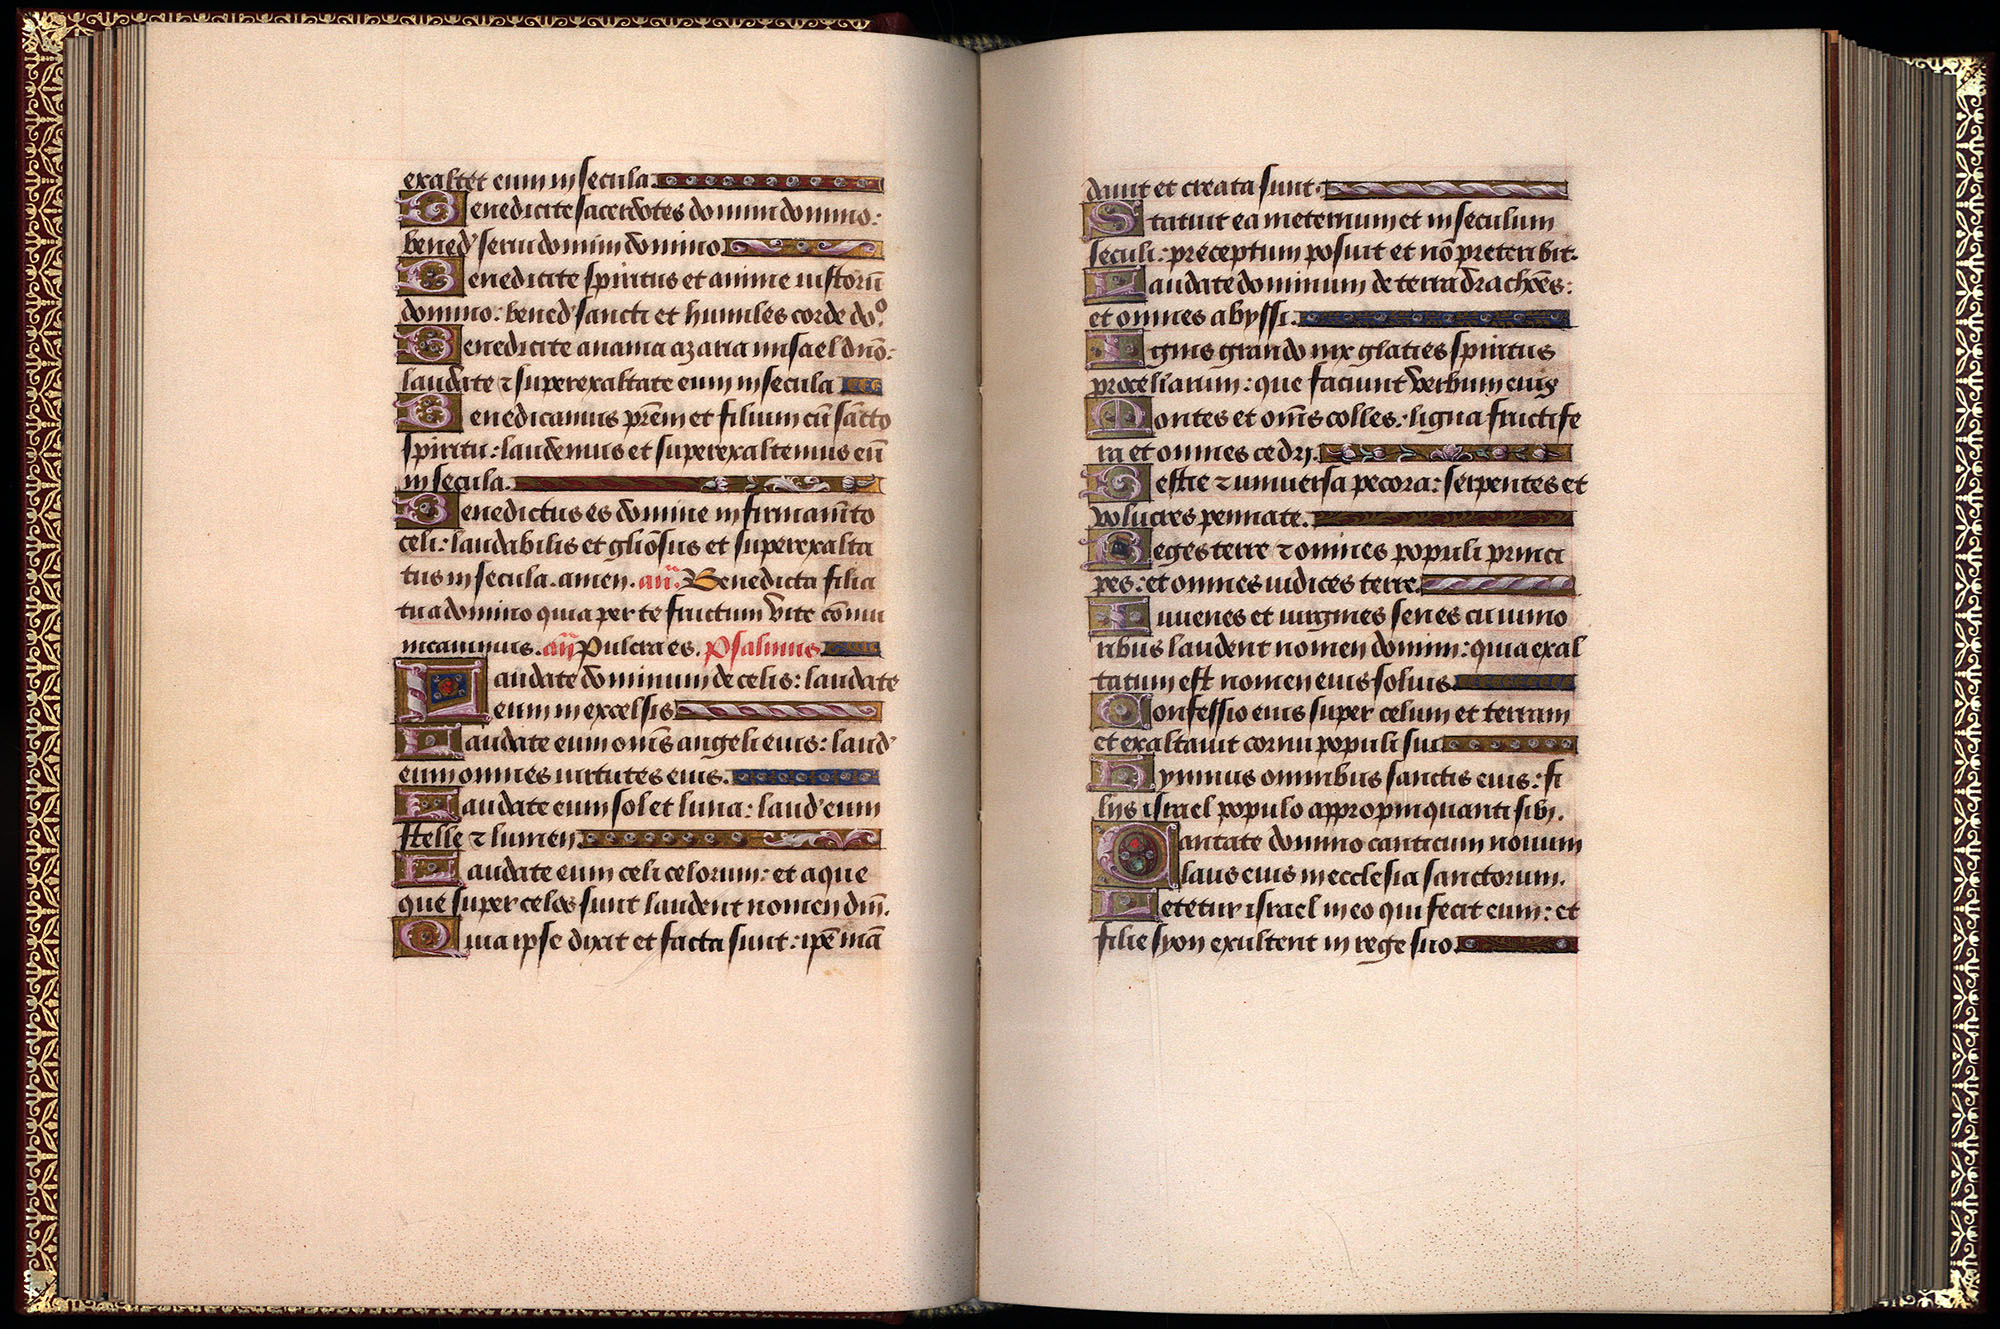 exaltet eum in secula.
Benedicite sacerdotes domini domino:
bened' serui domini domino.
Benedicite spiritus et anime iustorū
domino: bened' sancti et humiles corde dn̄o.
Benedicite anania azaria misael dn̄o:
laudate ⁊ superexaltate eum in secula
Benedicamus prēm et filium cū sācto
spiritu: laudemus et superexaltemus eū
in secula.
Benedictus es domine in firmamēto
celi: laudabilis et gliōsus et superexalta
tus in secula. amen. añ. Benedicta filia
tu a domino quia per te fructum vite cōmu
nicauimus. añ Pulcra es. Psalmus
Laudate dominum de celis: laudate
eum in excelsis.
Laudate eum omēs angeli eius: laud'
eum omnes uirtutes eius.
Laudate eum sol et luna: laud' eum
stelle ⁊ lumen.
Laudate eum celi celorum: et aque
que super celos sunt laudent nomen dn̄i.
Quia ipse dixit et facta sunt: ipē mā
dauit et creata sunt.
Statuit ea in eternum et in seculum
seculi: preceptum posuit et nō preteribit.
Laudate dominum de terra drachōes:
et omnes abyssi.
Ignis grando nix glaties spiritus
procellarum: que faciunt verbum eius
Montes et omēs colles: ligna fructife
ra et omnes cedri.
Bestie ⁊ uniuersa pecora: serpentes et
volucres pennate.
Reges terre ⁊ omnes populi princi
pes: et omnes iudices terre.
Iuuenes et uirgines senes cu iunio
ribus laudent nomen domini: quia exal
tatum est nomen eius solius.
Confessio eius super celum et terram
et exaltauit cornu populi sui.
Hymnus omnibus sanctis eius: fi
liis israel populo appropinquanti sibi.
Cantate domino canticum nouum
laus eius in ecclesia sanctorum.
Letetur israel in eo qui fecit eum: et
filie syon exultent in rege suo.